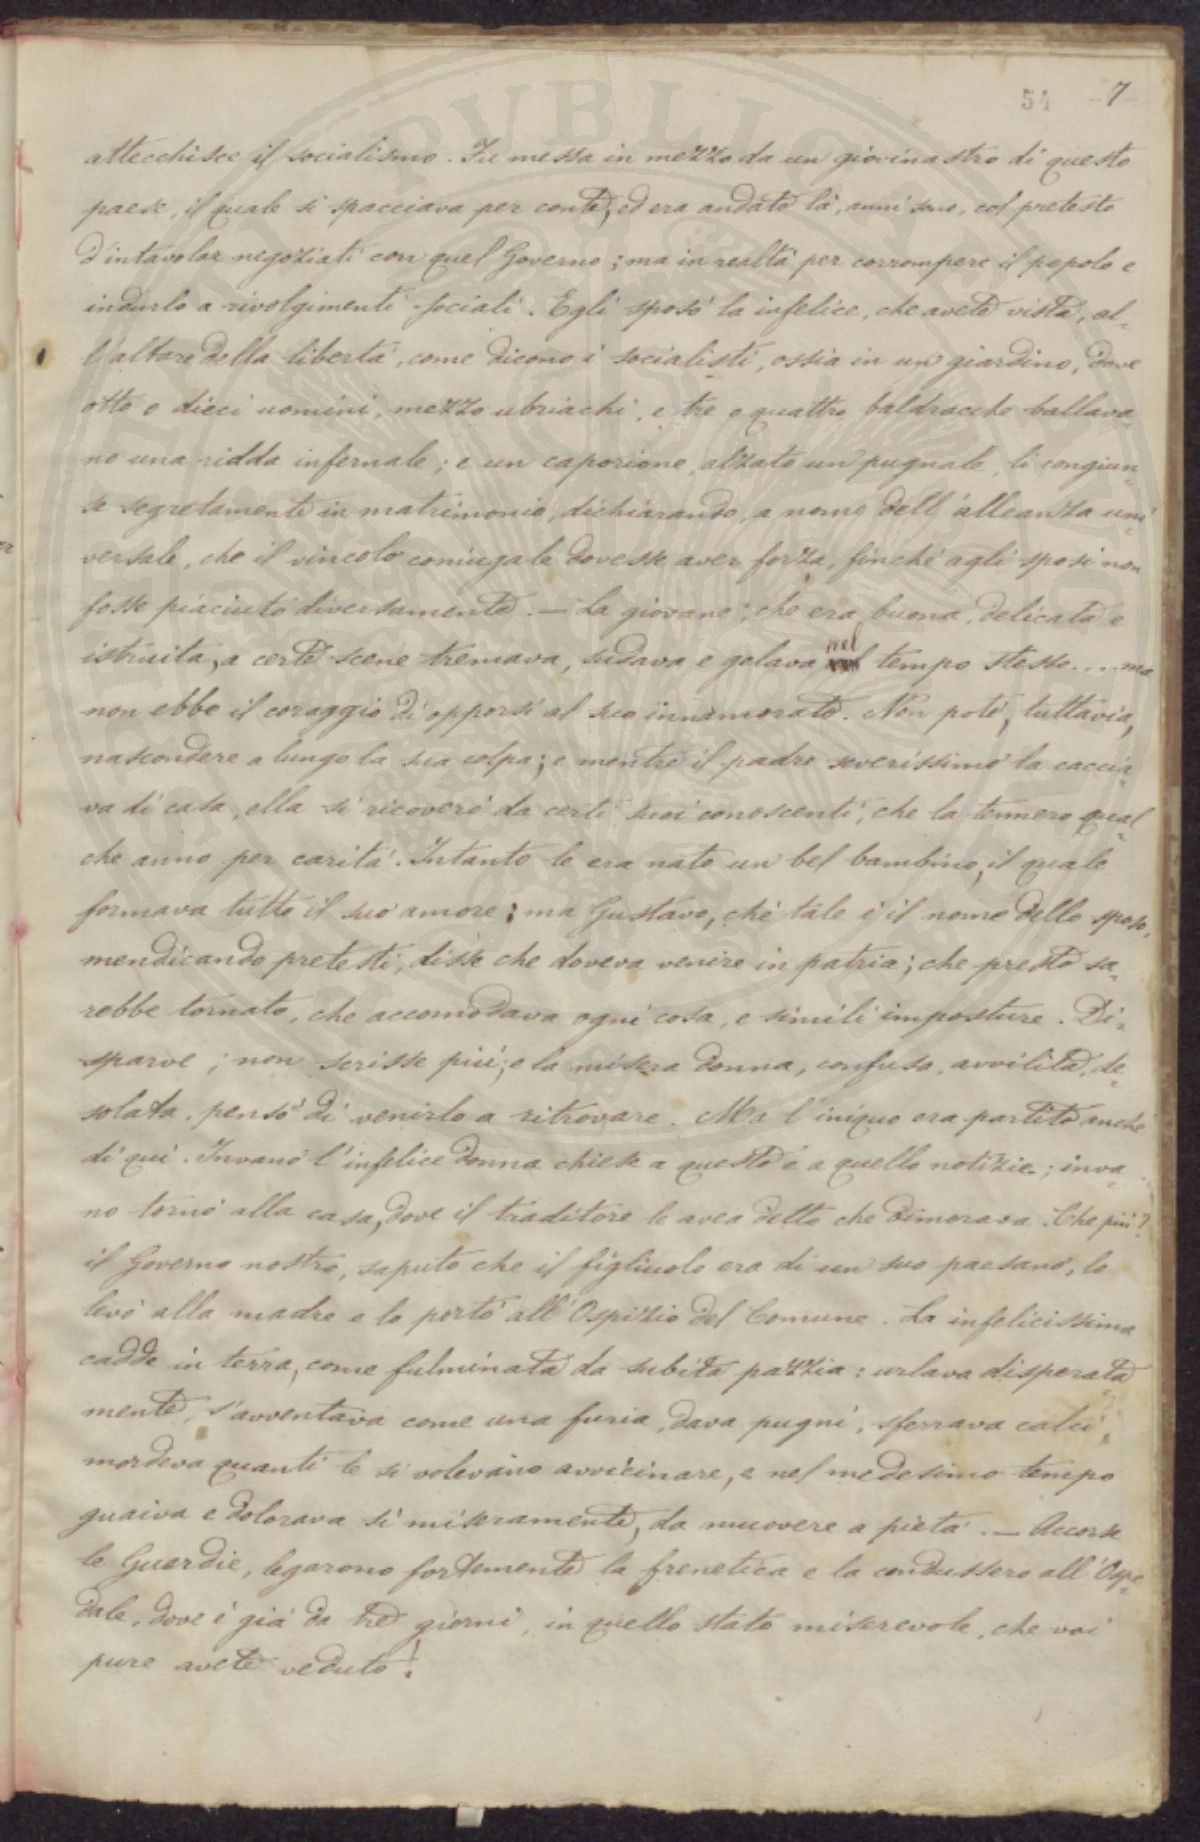 54 -7-
attecchisce il socialismo. Fu messa in mezzo da un giovinastro di questo
paese, il quale si spacciava per conte, ed era andato là, anni sono, col pretesto
d'intavolar negoziati con quel Governo; ma in realtà per corrompere il popolo e
indurlo a rivolgimenti sociali. Egli sposò la infelice, che avete vista, al-
l'altare della libertà, come dicono i socialisti, ossia in un giardino, dove
otto o dieci uomini, mezzo ubriachi, e tre o quattro baldracche ballava-
no una ridda infernale; e un caporione, alzato un pugnale, li congiun-
se segretamente in matrimonio, dichiarando, a nome dell'alleanza uni-
versale, che il vincolo coniugale dovesse aver forza, finchè agli sposi non
fosse piaciuto diversamente. — La giovane, che era buona, delicata e
istruita, a certe scene tremava, sudava e gelava nel tempo stesso.... ma
non ebbe il coraggio di opporsi al suo innamorato. Non potè, tuttavia,
nascondere a lungo la sua colpa; e mentre il padre severissimo la caccia-
va di casa, ella si ricoverò da certi suoi conoscenti, che la tennero qual-
che anno per carità. Intanto le era nato un bel bambino, il quale
formava tutto il suo amore; ma Gustavo, chè tale è il nome dello sposo,
mendicando pretesti, disse che doveva venire in patria; che presto sa-
rebbe tornato, che accomodava ogni cosa, e simili imposture. Di-
sparve; non scrisse più; e la misera donna, confusa, avvilita, de-
solata, pensò di venirlo a ritrovare. Ma l'iniquo era partito anche
di qui. Invano l'infelice donna chiese a questo e a quello notizie; inva-
no tornò alla casa, dove il traditore le avea detto che dimorava. Che più?
il Governo nostro, saputo che il figliuolo era di un suo paesano, lo
levò alla madre e lo portò all'Ospizio del Comune. La infelicissima
cadde in terra, come fulminata da subita pazzia: urlava disperata-
mente, s'avventava come una furia, dava pugni, sferrava calci,
mordeva quanti le si volevano avvicinare, e nel medesimo tempo
guaiva e dolorava sì miseramente, da muovere a pietà. — Accorse
le Guardie, legarono fortemente la frenetica e la condussero all'Ospe-
dale, dove è già da tre giorni, in quello stato miserevole, che voi
pure avete veduto!